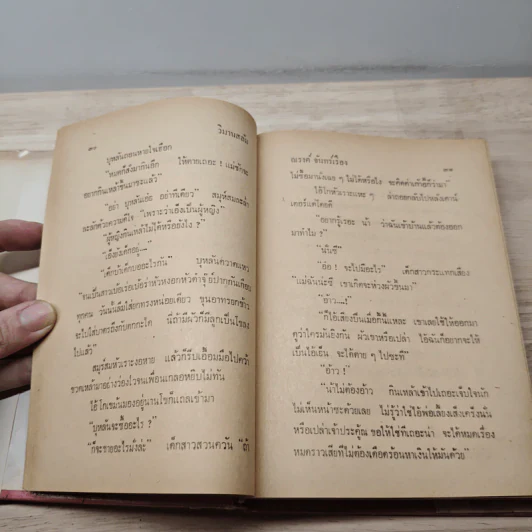 ๑๐ วิมานสลัม
บุหลันถอนหายใจเฮือก
"หมดก็สั่งมากินอีก ให้ตายเถอะ ! แม่ชักจะ
อยากกินเหล้าขึ้นมาซะแล้ว"
"อย่า บุหลันเอ๋ย อย่าทีเดียว" สมุห์สมละล่ำ
ละลักด้วยความตกใจ "เพราะว่าเอ็งเป็นผู้หญิง"
"ผู้หญิงกินเหล้าไม่ได้หรือยังไง ?"
"เอ็งยังเด็กอยู่—"
"เด็กบ้าเด็กบออะไรกัน" บุหลันตวาดแหว
ทุกคน วันนี้ลืมใส่ยกทรงหน่อยเดียว ขุนอาทรอกข้าว
จะไปใส่บาตรถึงกับตกกะได
ไปแล้ว"
สมุห์สมหัวเราะงอหาย แล้วก็รีบเอื้อมมือไปคว้า
ขวดเหล้าอย่างว่องไวจนเพื่อนเกลอหยิบไม่ทัน
ไอ้โกเชมันมองอยู่นานโขก็แถลเข้ามา
"บุหลันจะซื้ออะไร ?"
"ก็จะขายอะไรมั่งล่ะ" เด็กสาวสวนควัน "ถ้า
ณรงค์ จันทร์เรือง ๑๑
ไม่ซื้อมานั่งเฉย ๆ ไม่ได้หรือไง จะคิดค่าเก้าอี้กี่ว่ามา"
เค้อร์แต่โดยดี
"อยากรู้เรอะ น้า ว่าฉันเข้าบ้านแล้วต้องออก
มาทำไม ?"
"นั่นซี"
"อ๋อ ! จะไปมีอะไร" เด็กสาวกระแทกเสียง
"แม่ฉันน่ะซี เขาเกิดจะห่วงผัวขึ้นมา"
"อ้าว....!"
"ก็ไอ้เสียงปืนเมื่อกี้นั่นแหละ เขาเลยใช้ให้ออกมา
ดูว่าใครมันยิงกัน ผัวเขาหรือเปล่า ไอ้ฉันก็อยากจะให้
เป็นไอ้เย็น จะได้ตาย ๆ ไปซะที"
"อ้าว !"
"น้าไม่ต้องอ้าว กินเหล้าเข้าไปเถอะเจ็บใจนัก
ไม่เห็นหน้าซะด้วยเลย ไม่รู้ว่าใช่ไอ้พ่อเลี้ยงเส็งเคร็งนั่น
หรือเปล่าเจ้าประคุ้ณ ขอให้ใช่ทีเถอะน่า จะได้หมดเรื่อง
หมดราวเสียทีไม่ต้องเดือดร้อนหาเงินให้มันด้วย"